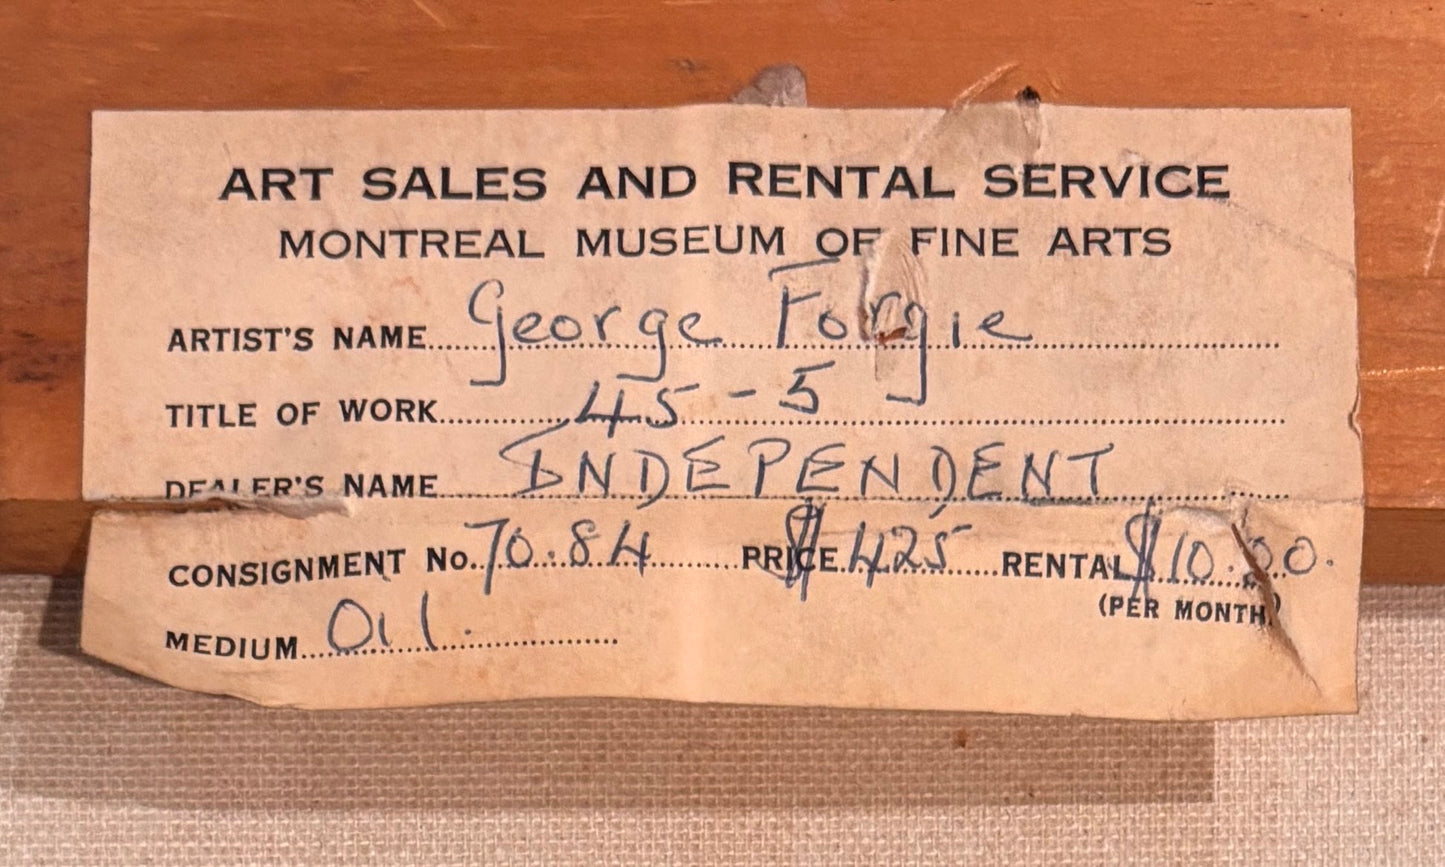 ART SALES AND RENTAL SERVICE
MONTREAL MUSEUM OF FINE ARTS
ARTIST'S NAME George Forgie
TITLE OF WORK 45-5
DEALER'S NAME INDEPENDENT
CONSIGNMENT No. 70.84 PRICE $425 RENTAL $10.00.
(PER MONTH)
MEDIUM Oil.